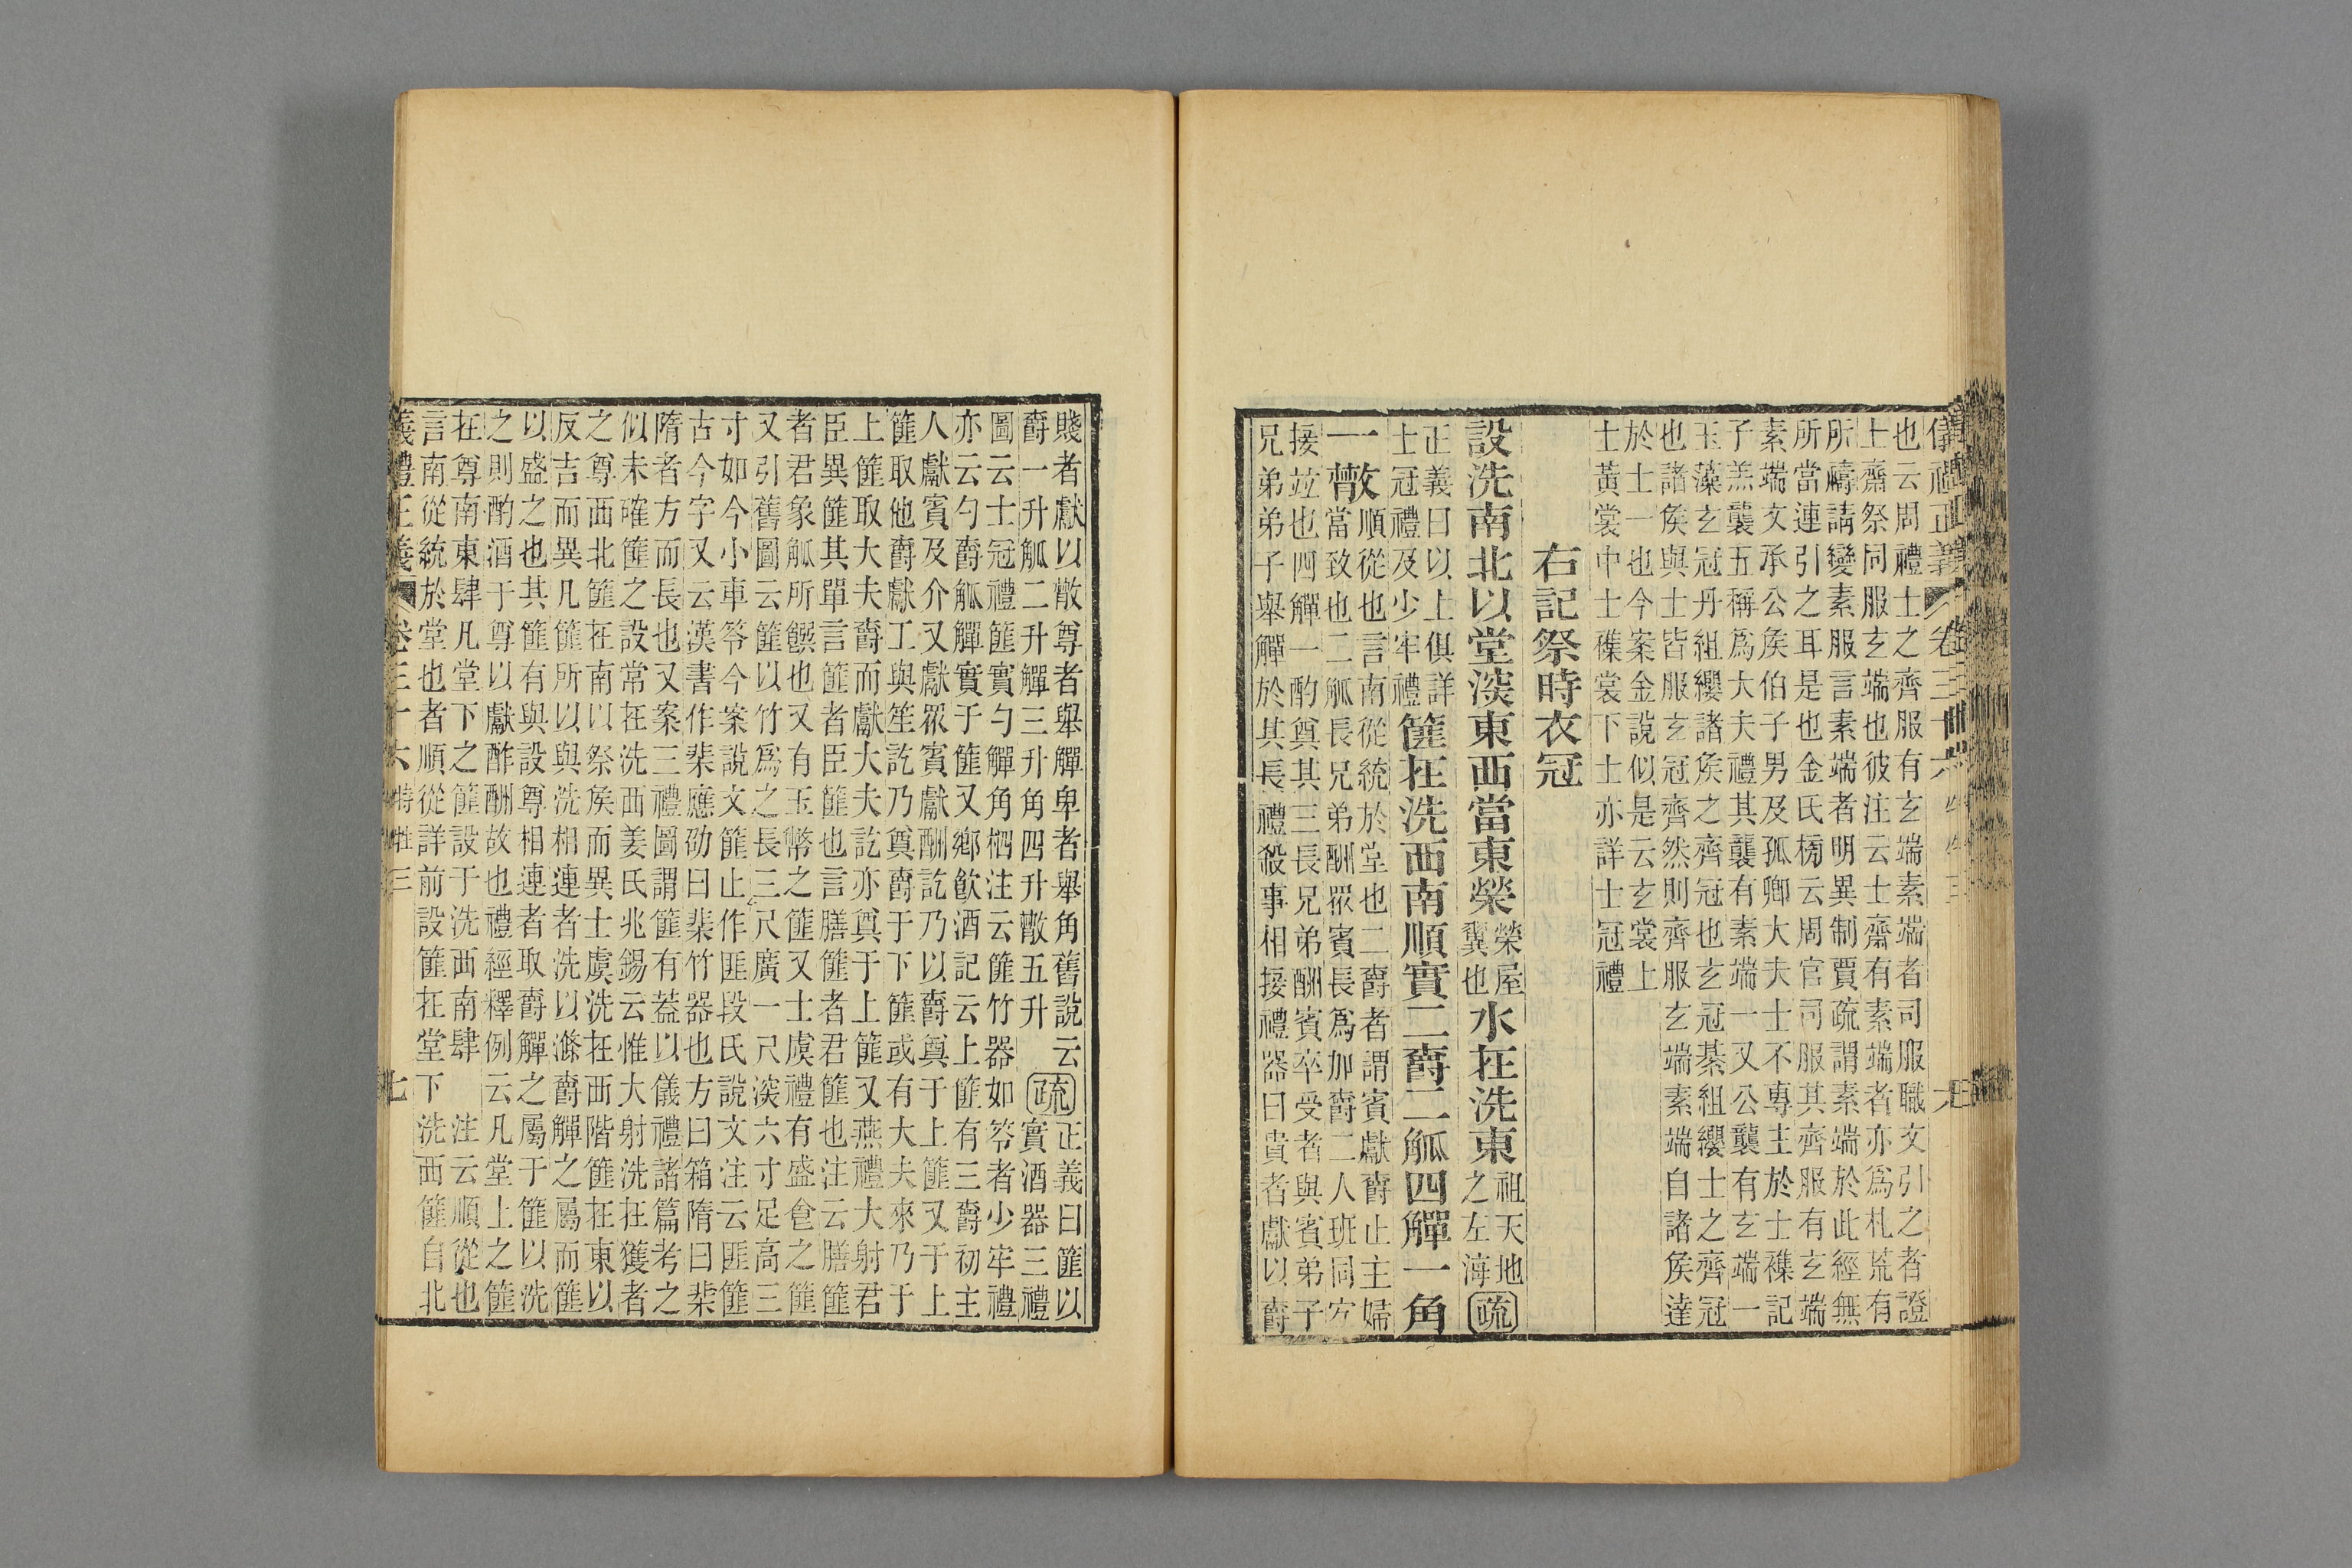 儀禮正義 卷三十六
也云周禮士之齊服有玄端素端者司服職文引之者證
上齋祭同服玄端也彼注云士齋有素端者亦爲札荒有
所禱請變素服言素端者明異制賈疏謂素端於此經無
所當連引之耳是也金氏榜云周官司服其齊服有玄端
素端文承公矦伯子男及孤卿大夫士不專主於士襍記
子羔襲五稱爲大夫禮其襲有素端一又公襲有玄端一
玉藻玄冠丹組纓諸矦之齊冠也玄冠綦組纓士之齊冠
也諸矦與士皆服玄冠齊然則齊服玄端素端自諸矦達
於士一也今案金說似是云玄裳上
士黃裳中士襍裳下士亦詳士冠禮
右記祭時衣冠
設洗南北以堂深東西當東榮
榮屋
翼也
水在洗東
祖天地
之左海
疏
正義曰以上俱詳
士冠禮及少牢禮
篚在洗西南順實二爵二觚四觶一角
一散
順從也言南從統於堂也二爵者謂賓獻爵止主婦
當致也二觚長兄弟酬眾賓長爲加爵二人班同宜
接並也四觶一酌奠其三長兄弟酬賓卒受者與賓弟子
兄弟弟子舉觶於其長禮殺事相接禮器曰貴者獻以爵
賤者獻以散尊者舉觶卑者舉角舊說云
爵一升觚二升觶三升角四升散五升
疏
正義曰篚以
實酒器三禮
圖云士冠禮篚實勺觶角柶注云篚竹器如笭者少牢禮
亦云勺爵觚觶實于篚又鄉飲酒記云上篚有三爵初主
人獻賓及介又獻眾賓獻酬訖乃以爵奠于上篚又于上
篚取他爵獻工與笙訖乃奠爵于下篚或有大夫來乃于
上篚取大夫爵而獻大夫訖亦奠于上篚又燕禮大射君
臣異篚其單言篚者臣篚也言膳篚者君篚也注云膳篚
者君象觚所饌也又有玉幣之篚又士虞禮有盛飵之篚
又引舊圖云篚以竹爲之長三尺廣一尺深六寸足高三
寸如今小車笭今案說文篚止作匪段氏說文注云匪篚
古今字又云漢書作棐應劭曰棐竹器也方曰箱隋曰棐
隋者方而長也又案三禮圖謂篚有蓋以儀禮諸篇考之
似未確篚之設常在洗西姜氏兆錫云惟大射洗在獲者
之尊西北篚在南以祭矦而異士虞洗在西階篚在東以
反吉而異凡篚所以與洗相連者洗以滌爵觶之屬而篚
以盛之也其篚有與設尊相連者取爵觶之屬于篚以洗
之則酌酒于尊以獻酢酬故也禮經釋例云凡堂上之篚
在尊南東肆凡堂下之篚設于洗西南肆 注云順從也
言南從統於堂也者順從詳前設篚在堂下洗西篚自北
儀禮正義 卷三十六 特牲三 七